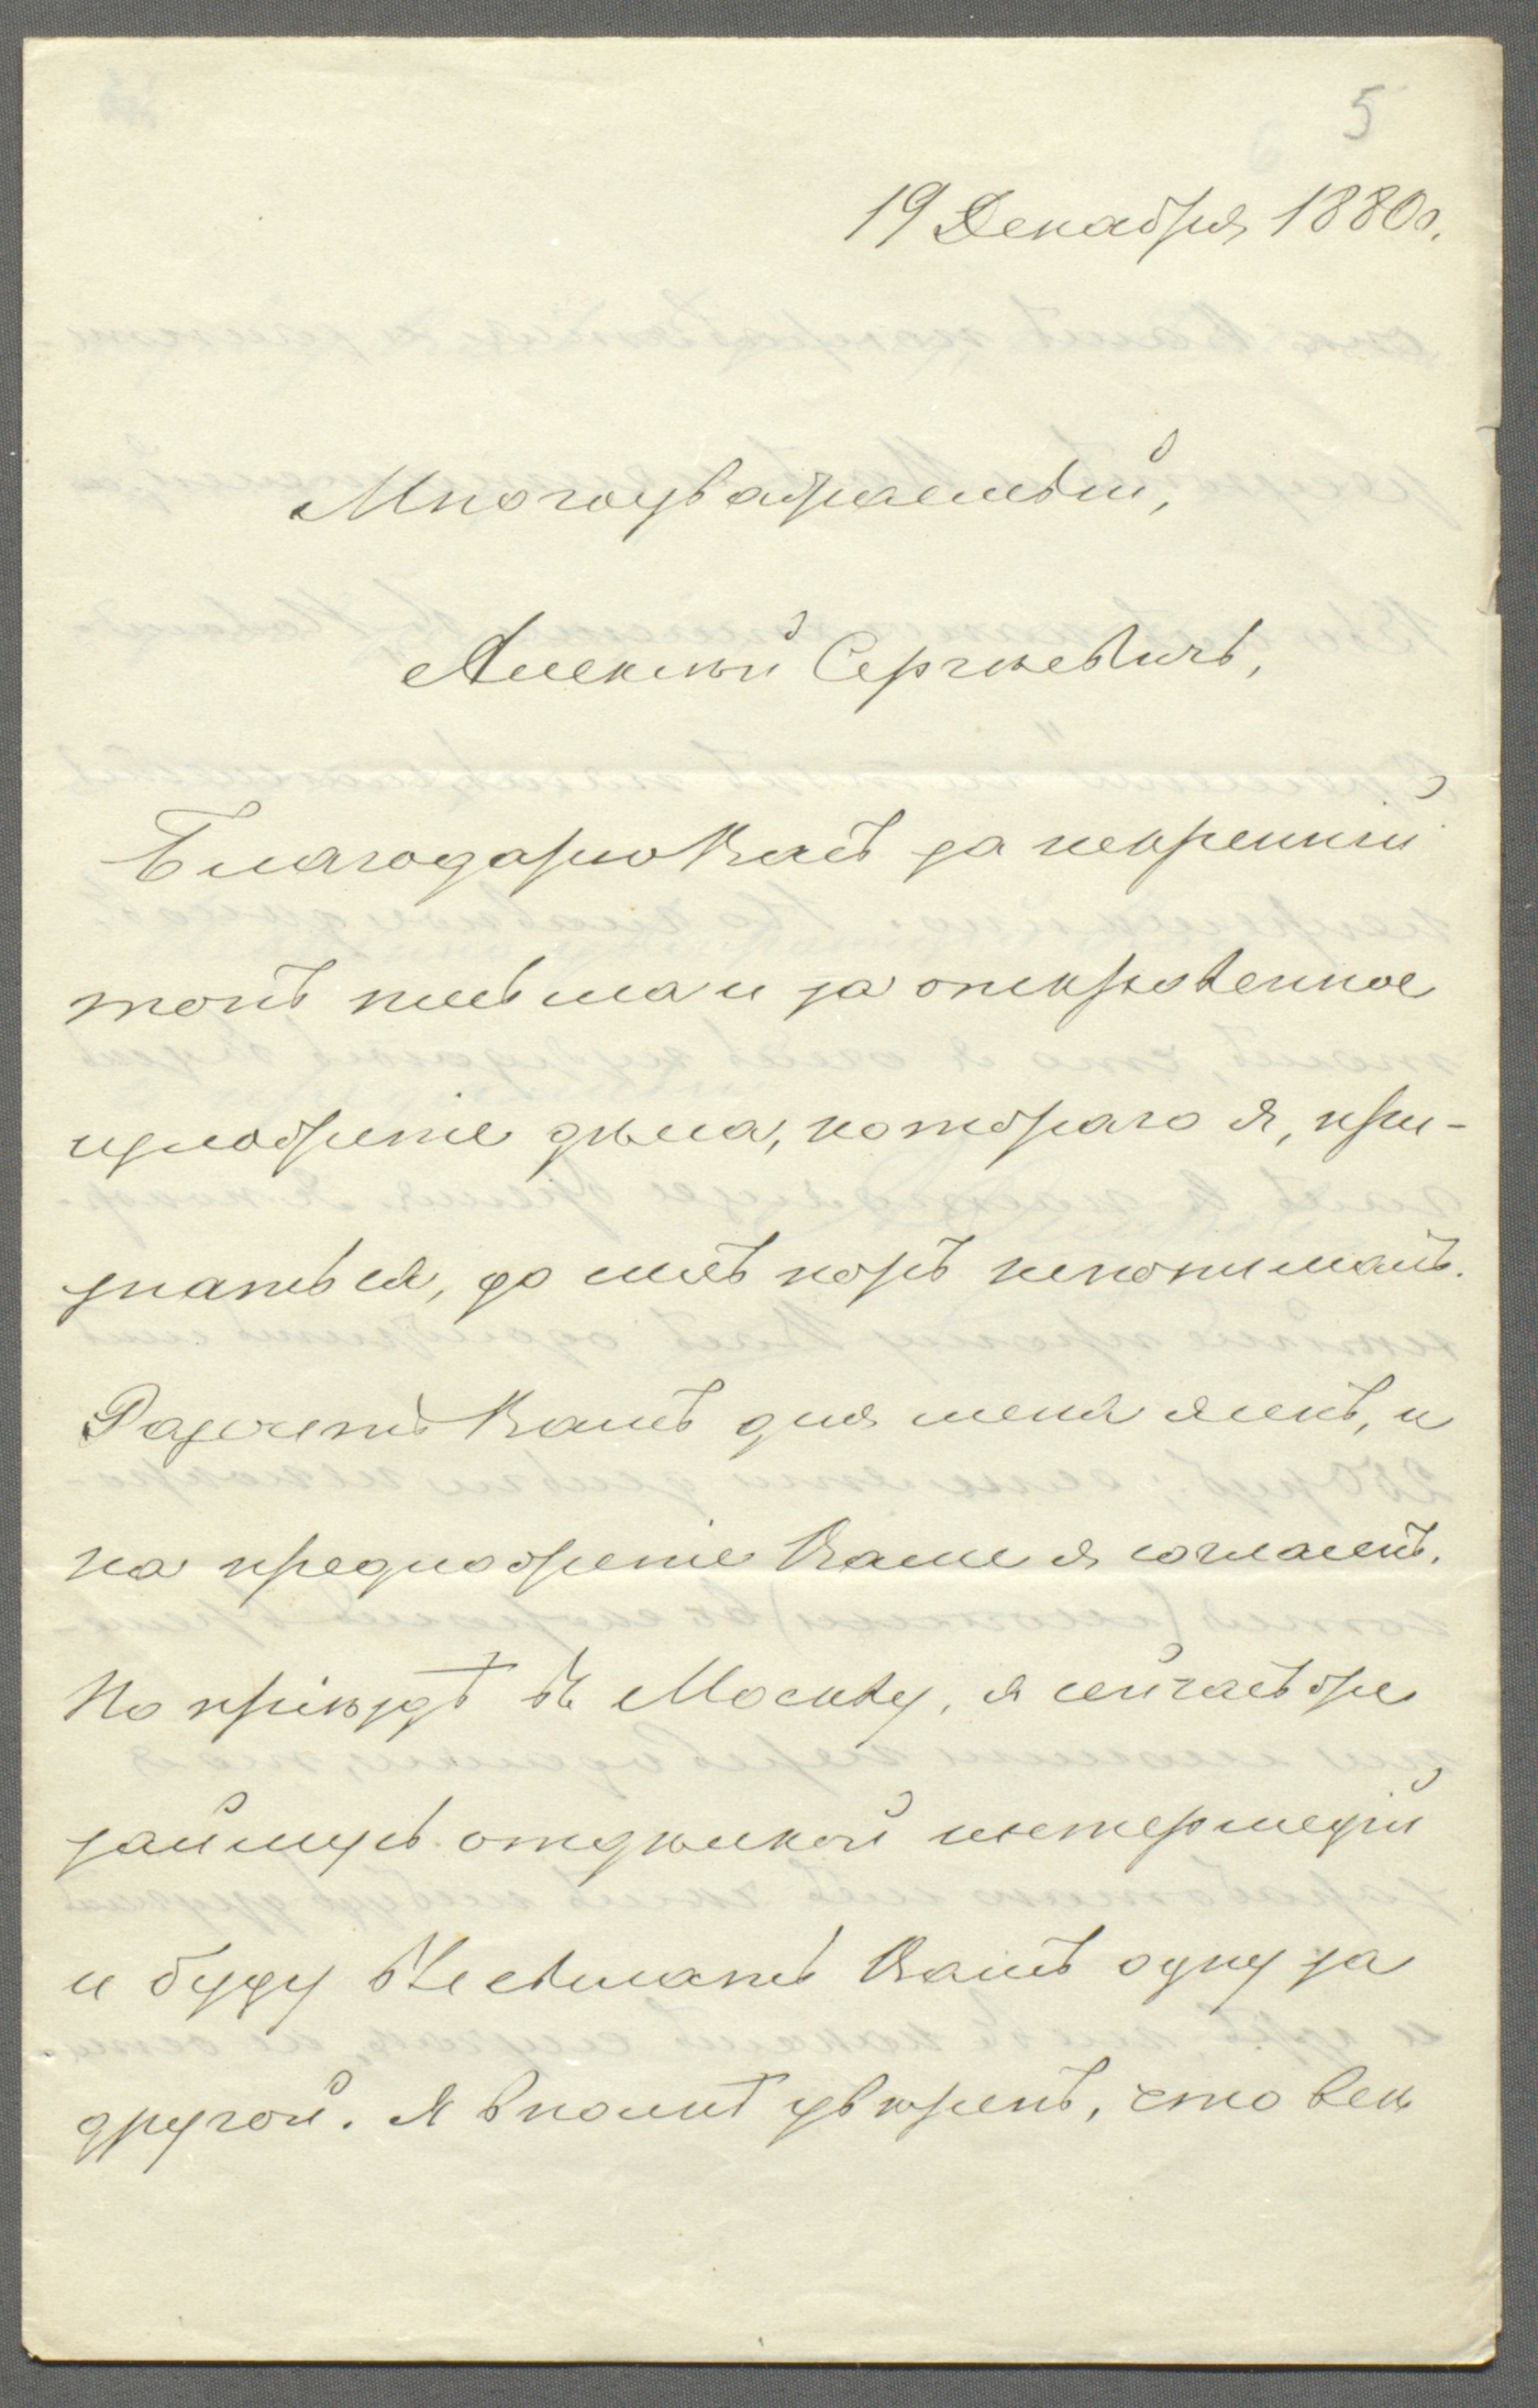 5
19 Декабря 1880 г.
Многоуважаемый,
Алексѣй Сергѣевичъ,
Благодарю Васъ за искренній
тонъ письма и за откровенное
изложеніе дѣла, котораго я, при-
знаться, до сихъ поръ непонималъ.
Разсчетъ Вашъ для меня ясенъ, и
на предложеніе Ваше я согласенъ.
По пріѣздѣ въ Москву, я сейчасъ же
займусь отдѣлкой интермедій
и буду высылать Вамъ одну за
другой. Я вполнѣ увѣренъ, что всѣ